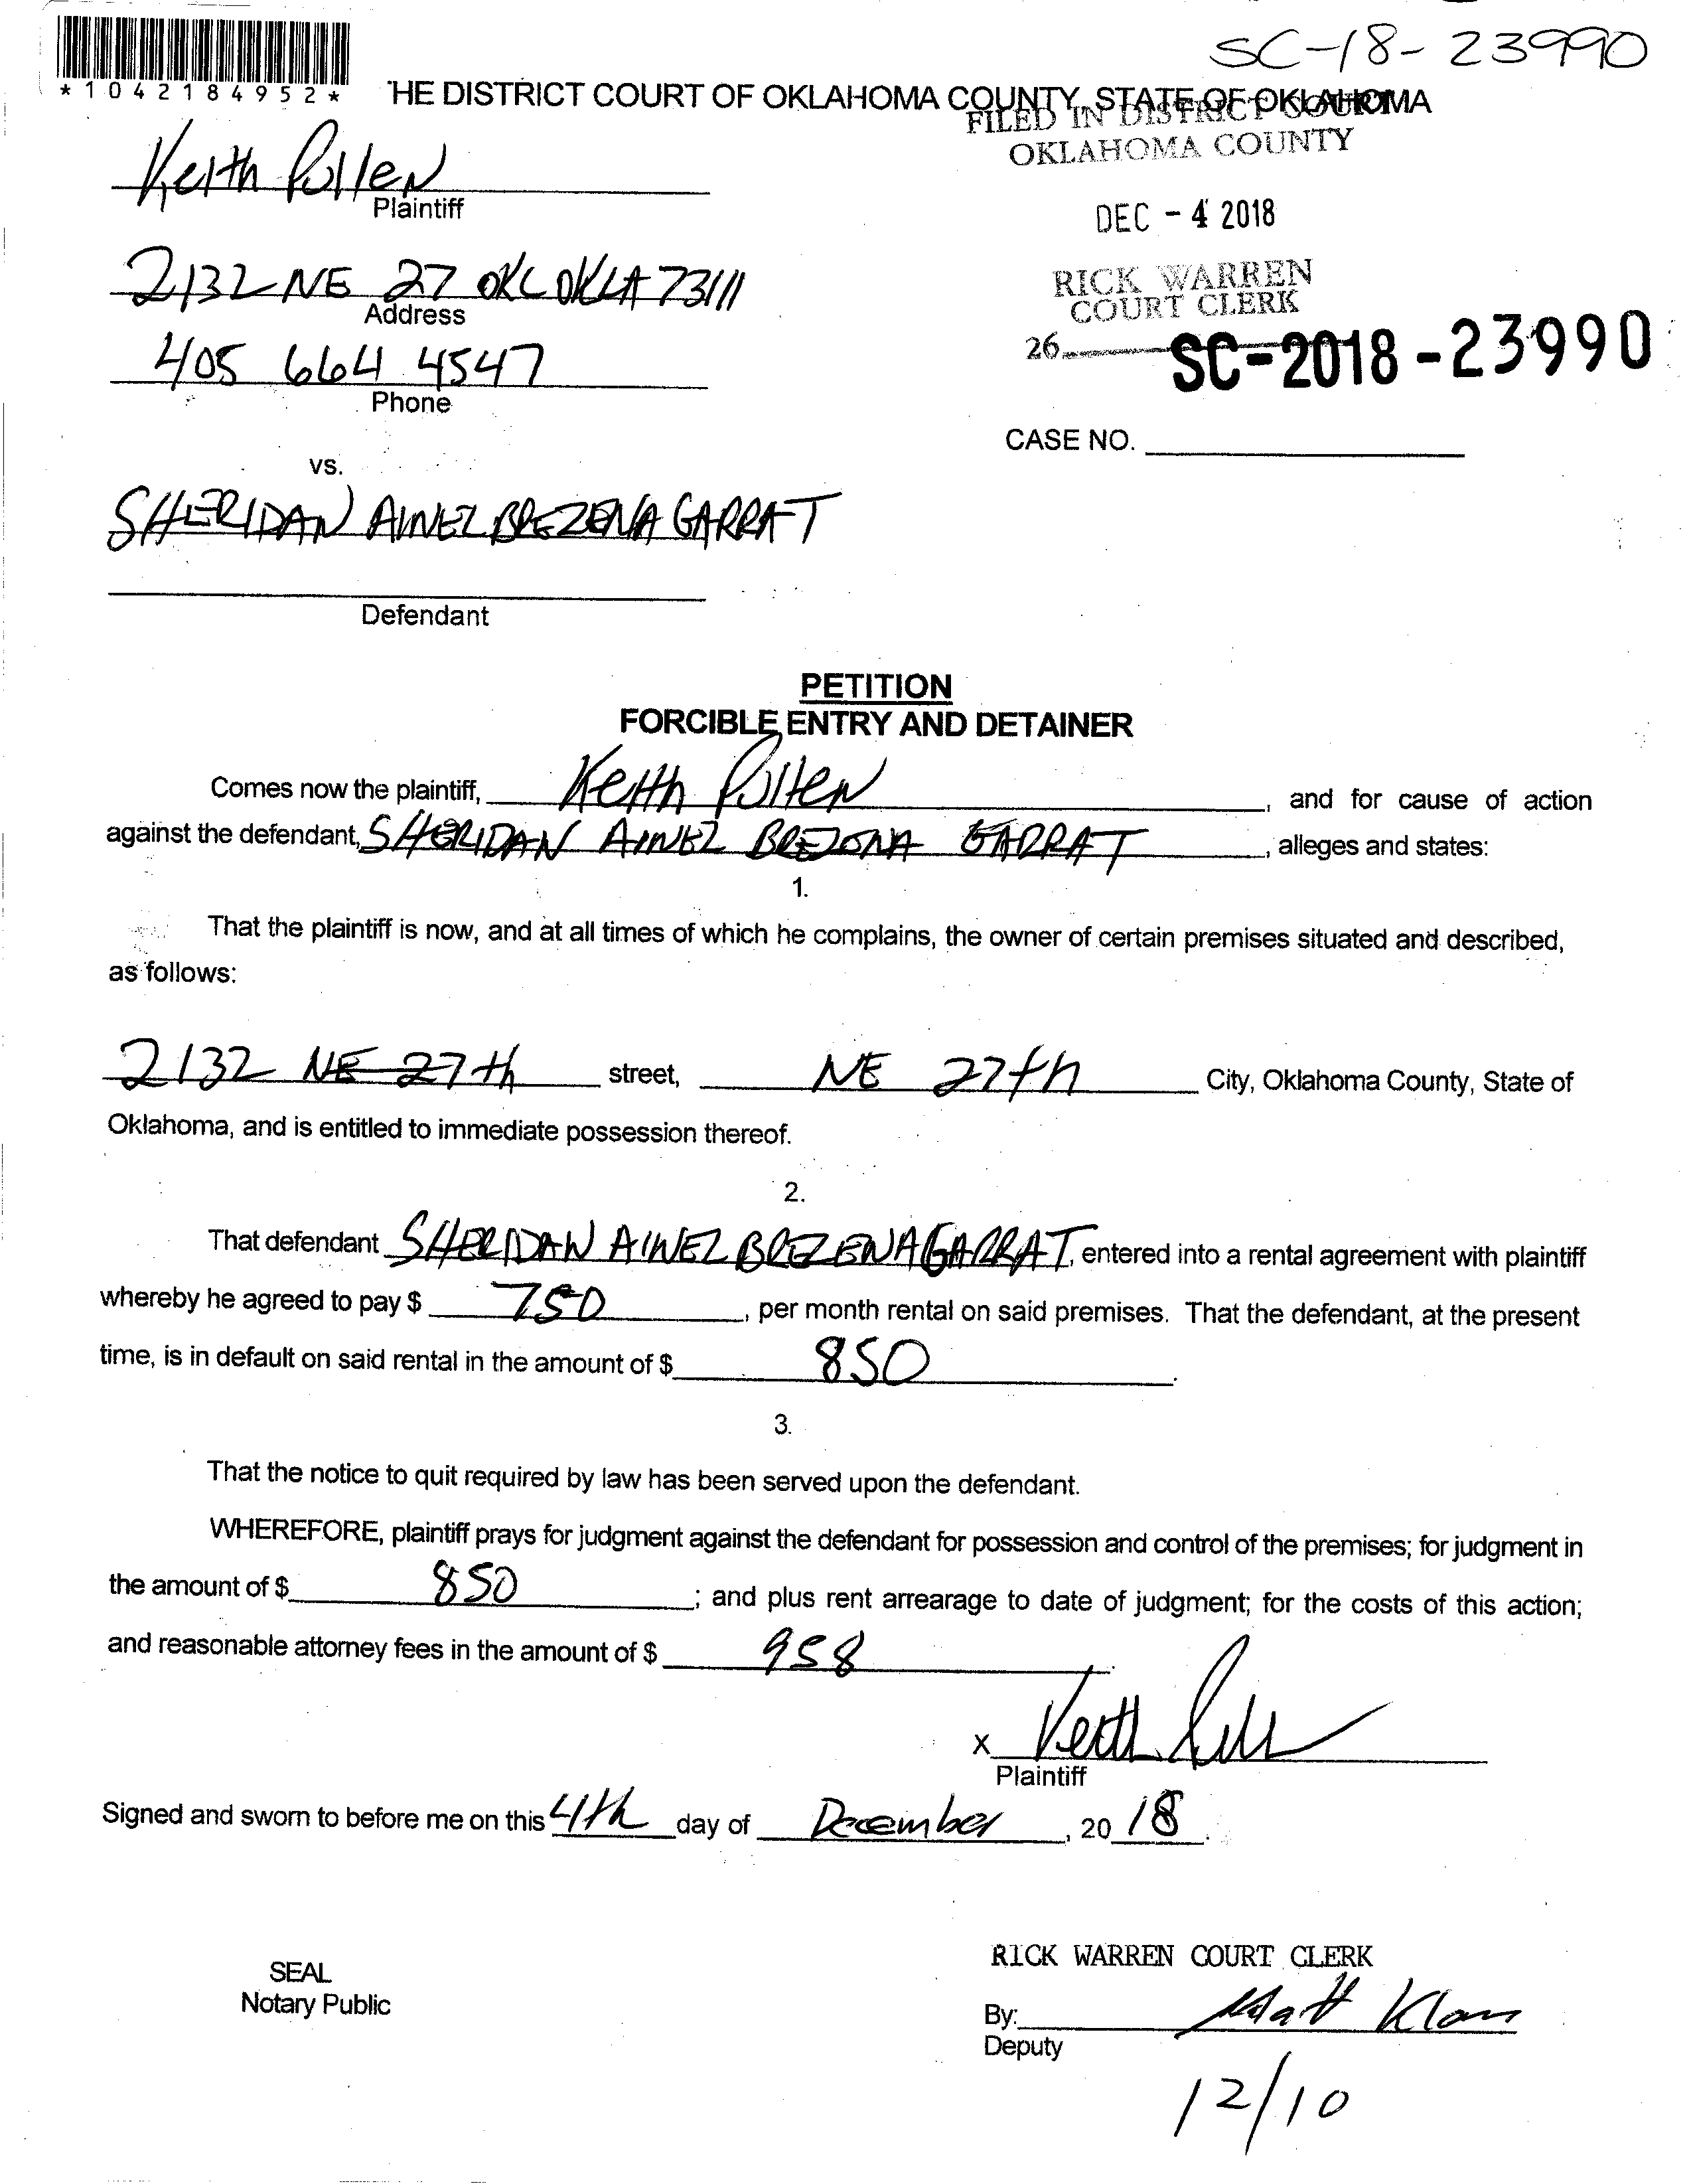 SC-18-23990
*1042184952*
HE DISTRICT COURT OF OKLAHOMA COUNTY, STATE OF OKLAHOMA
FILED IN DISTRICT COURT
OKLAHOMA COUNTY
Keith Pullen
Plaintiff
DEC - 4 2018
2132 NE 27 OKC OKLA 73111
Address
RICK WARREN
COURT CLERK
405 664 4547
Phone
26
SC-2018-23990
CASE NO.
vs.
SHERIDAN AINEZ BREZENA GARRAT
Defendant
PETITION
FORCIBLE ENTRY AND DETAINER
Comes now the plaintiff, Keith Pullen, and for cause of action
against the defendant, SHERIDAN AINEZ BREZONA GARRAT, alleges and states:
1.
That the plaintiff is now, and at all times of which he complains, the owner of certain premises situated and described,
as follows:
2132 NE 27th street, NE 27th City, Oklahoma County, State of
Oklahoma, and is entitled to immediate possession thereof.
2.
That defendant SHERIDAN AINEZ BREZENA GARRAT, entered into a rental agreement with plaintiff
whereby he agreed to pay $ 750, per month rental on said premises. That the defendant, at the present
time, is in default on said rental in the amount of $ 850.
3.
That the notice to quit required by law has been served upon the defendant.
WHEREFORE, plaintiff prays for judgment against the defendant for possession and control of the premises; for judgment in
the amount of $ 850; and plus rent arrearage to date of judgment; for the costs of this action;
and reasonable attorney fees in the amount of $ 958.
X Keith Pullen
Plaintiff
Signed and sworn to before me on this 4th day of December, 2018.
SEAL
Notary Public
RICK WARREN COURT CLERK
By: Matt
Deputy
12/10